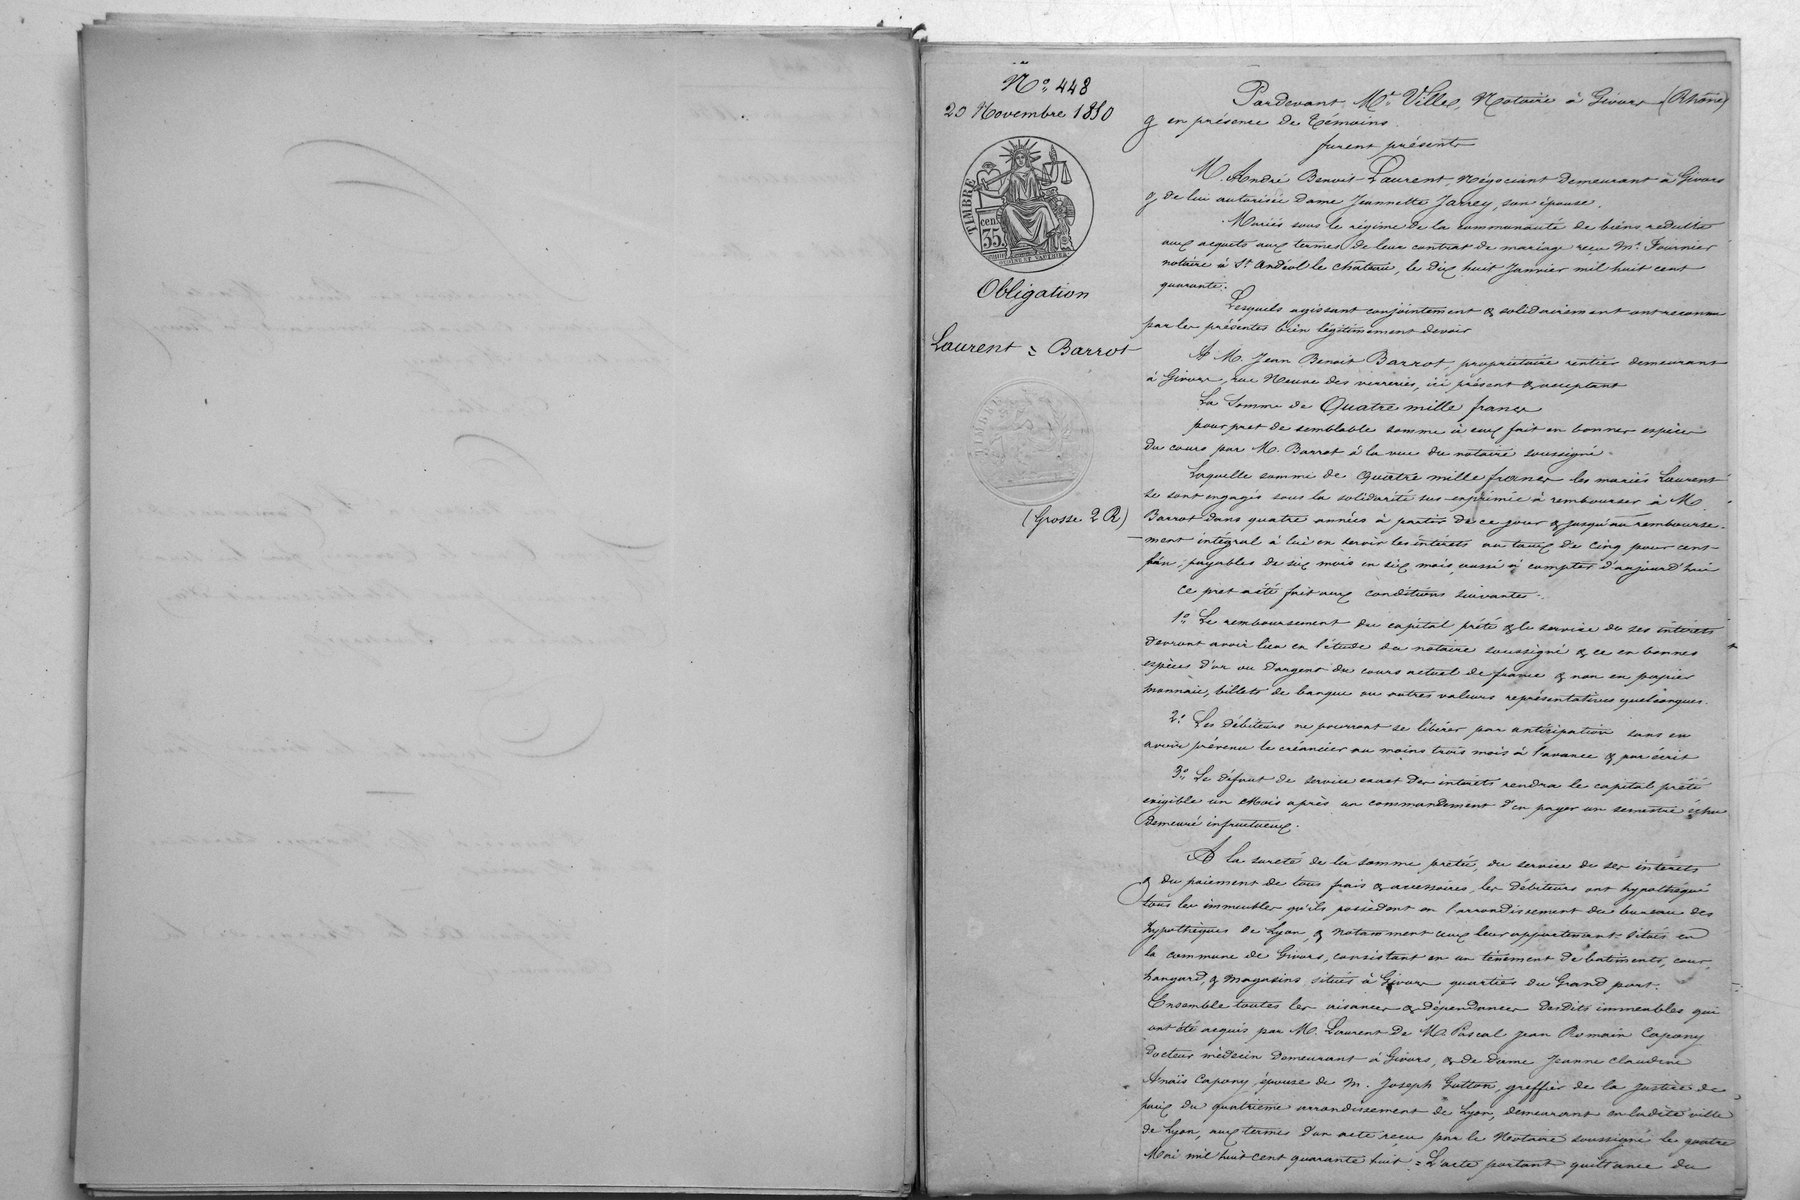 N° 448
20 Novembre 1850
TIMBRE
cen.
35.
Obligation
Laurent = Barrot
TIMBRE
(Grosse 2 R)
Pardevant Mt Villes, Notaire à Givors (Rhône)
& en présence de témoins.
furent présents
M. André Benoit Laurent, Négociant demeurant à Givors
& de lui autorisée dame Jeannette Jarrey, son épouse.
Mariés sous le régime de la communauté de biens réduite
aux acquets aux termes de leur contrat de mariage reçu Me Fournier
notaire à St Andéol le chateau, le dix huit Janvier mil huit cent
quarante.
Lesquels agissant conjointement & solidairement ont reconnu
par les présentes bien légitimement devoir
A M. Jean Benoit Barrot, propriétaire rentier demeurant
à Givors, rue Neuve des verreries, ici présent & acceptant
La Somme de Quatre mille francs
pour pret de semblable somme à eux fait en bonnes espèces
du cours par M. Barrot à la vue du notaire soussigné.
Laquelle somme de quatre mille francs les mariés Laurent
se sont engagés sous la solidarité sus-exprimée à rembourser à M.
Barrot dans quatre années à partir de ce jour & jusqu'au rembourse-
ment intégral à lui en servir les intérets au taux de cinq pour cent
l'an, payables de six mois en six mois, aussi à compter d'aujourd'hui
Ce pret a été fait aux conditions suivantes.
1° Le remboursement du capital prêté & le service de ses intérets
devront avoir lieu en l'étude du notaire soussigné & ce en bonnes
espèces d'or ou d'argent du cours actuel de france & non en papier
monnaie, billets de banque ou autres valeurs représentatives quelconques.
2° Les débiteurs ne pourront se libérer par anticipation sans en
avoir prévenu le créancier au moins trois mois à l'avance & par écrit
3° Le défaut de service exact des intérets rendra le capital prêté
exigible un Mois après un commandement d'en payer un semestre échu
demeuré infructueux.
A la sureté de la somme pretée, du service de ses intérets
& du paiement de tous frais & accessoires, les débiteurs ont hypothéqué
tous les immeubles qu'ils possèdent en l'arrondissement du bureau des
hypothèques de Lyon, & notamment ceux leur appartenant situés en
la commune de Givors, consistant en un ténement de batiments, cour,
hangard, & magasins situés à Givors quartier du Grand port.
Ensemble toutes les aisances & dépendances desdits immeubles qui
ont été acquis par M. Laurent de M. Pascal Jean Romain Capony
docteur médecin demeurant à Givors, & de dame Jeanne Claudine
Anaïs Capony, épouse de M. Joseph Gutton, greffier de la Justice de
paix du quatrième arrondissement de Lyon, demeurant en ladite ville
de Lyon, aux termes d'un acte reçu par le Notaire soussigné le quatre
Mai mil huit cent quarante huit = L'acte portant quittance du